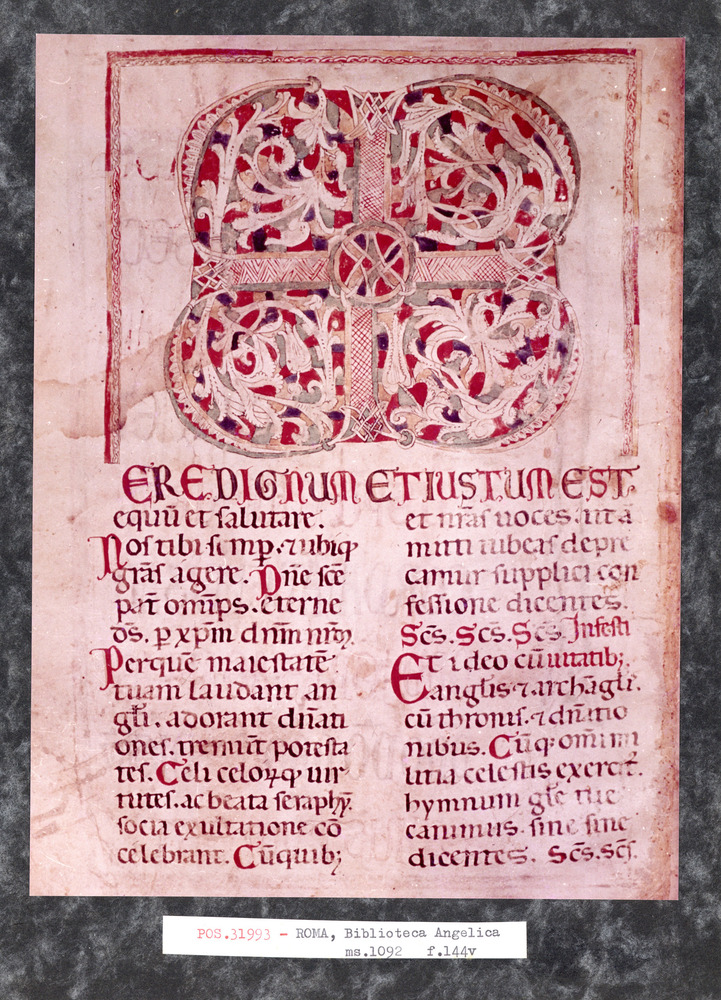 EREDIGNUM ETIUSTUM EST.
equū et salutare.
Nos tibi semp̱. ⁊ ubiq;
grās agere. Dn̄e sc̄e
pat̄ omīps. eterne
ds̄. p̱ xp̄m dn̄m nr̄m
Perquē maiestatē
tuam laudant an
gl̄i. adorant dn̄ati
ones. tremūt potesta
tes. Celi celoꝝq; uir
tutes. ac beata seraphȳ.
socia exultatione cō
celebrant. Cū quib;
et nr̄as uoces. ut a
mitti iubeas depre
camur supplici con
fessione dicentes.
Sc̄s. Sc̄s. Sc̄s. Infesti
Et ideo cū uitatib;
angl̄is. ⁊ archāgl̄i.
cū thronis. ⁊ dn̄atio
nibus. Cūq; omī mi
litia celestis exercit̄.
hymnum gl̄e tue
canimus. sine fine
dicentes. Sc̄s. sc̄s.
POS.31993 - ROMA, Biblioteca Angelica
ms.1092 f.144v